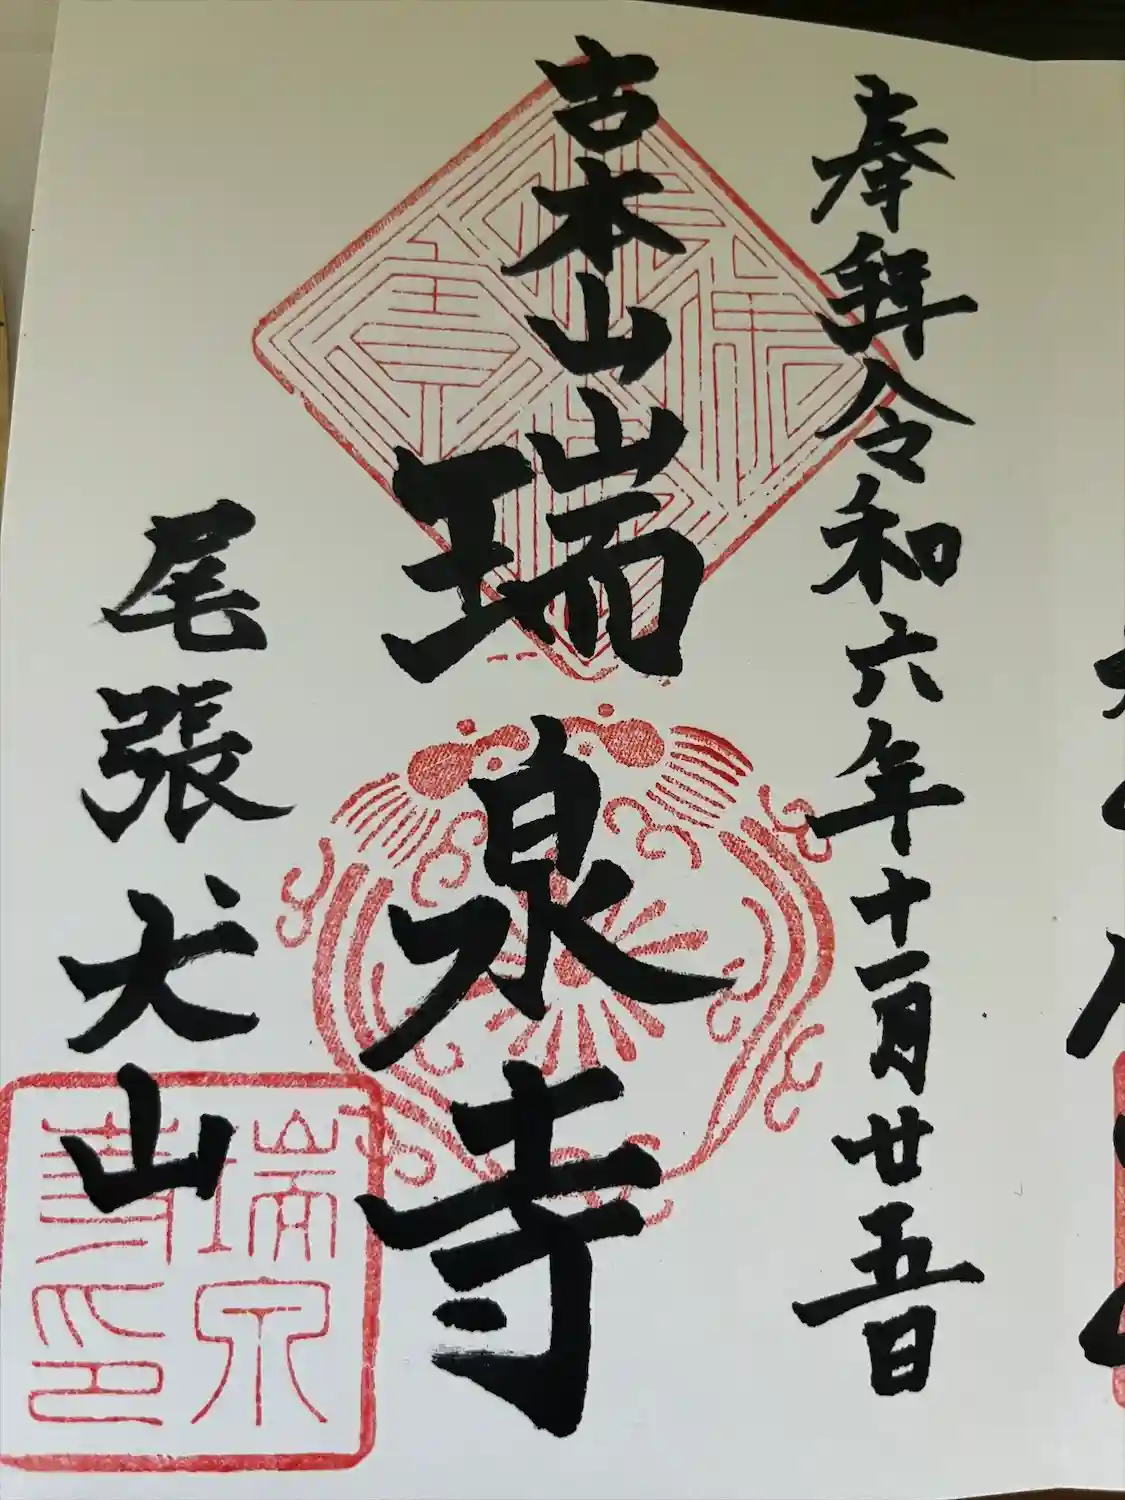 奉拜令和六年十一月廿五日
古本山瑞泉寺
尾張犬山
瑞泉
寺印